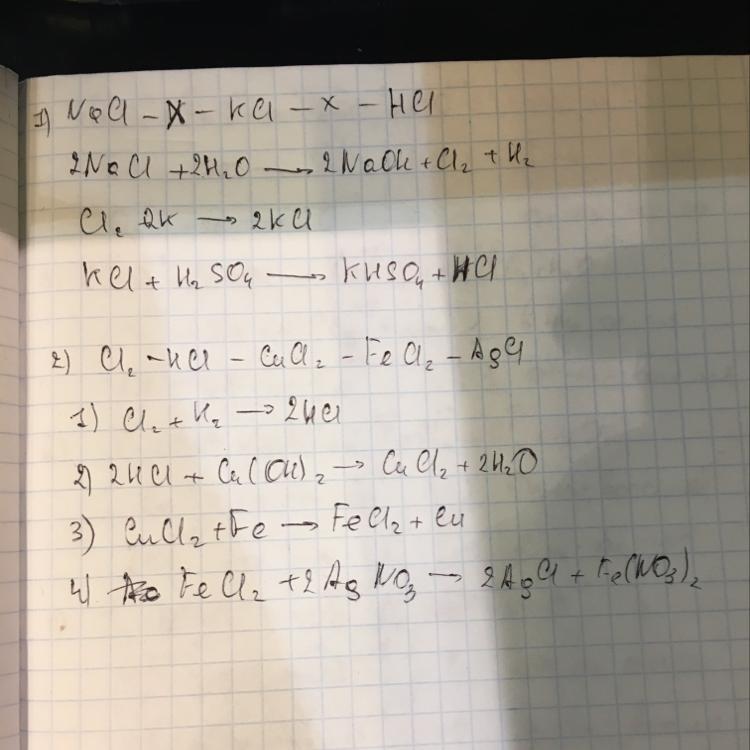 1) NaCl – X – KCl – X – HCl
2NaCl + 2H₂O ⟶ 2NaOH + Cl₂ + H₂
Cl₂ 2K → 2KCl
KCl + H₂SO₄ ⟶ KHSO₄ + HCl
2) Cl₂ – HCl – CuCl₂ – FeCl₂ – AgCl
1) Cl₂ + H₂ → 2HCl
2) 2HCl + Cu(OH)₂ → CuCl₂ + 2H₂O
3) CuCl₂ + Fe → FeCl₂ + Cu
4) FeCl₂ + 2AgNO₃ → 2AgCl + Fe(NO₃)₂